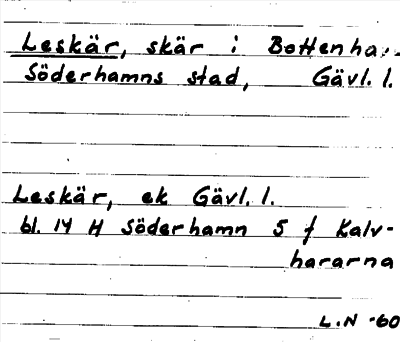 Leskär, skär i Bottenha..
Söderhamns stad, Gävl. l.
Leskär, ek Gävl. l.
bl. 14 H Söderhamn S f Kalv-
hararna
L.N -60